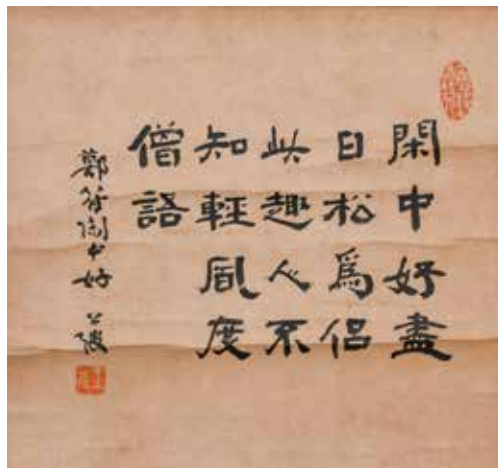 閑中好盡
日松爲侶
此趣人不
知輕風度
僧語
鄭符閑中好